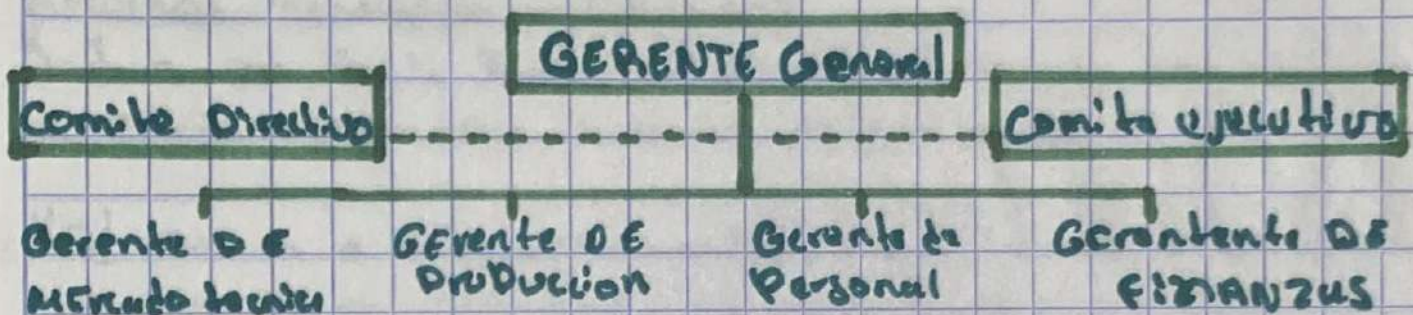 GERENTE General
Comite Directivo
Comite ejecutivo
Gerente DE
MErcadotecnica
GErente DE
PRODUccion
Gerente de
Personal
Gerentente DE
FINANZUS